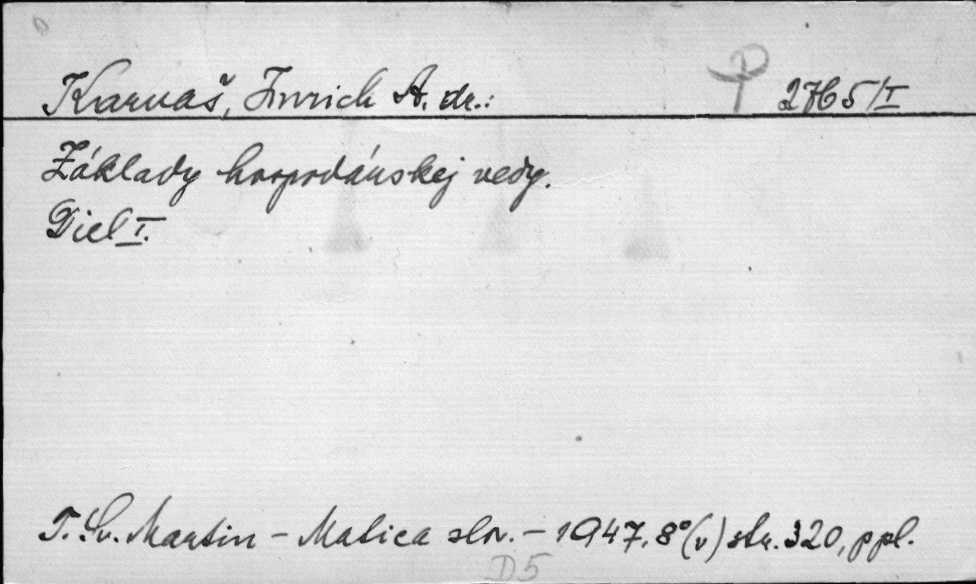 D
Karvaš, Imrich A. dr.: P 2765/I
Základy hospodárskej vedy.
Diel I.
T. Sv. Martin – Matica slov. – 1947. 8° (v) str. 320, ppl.
D5